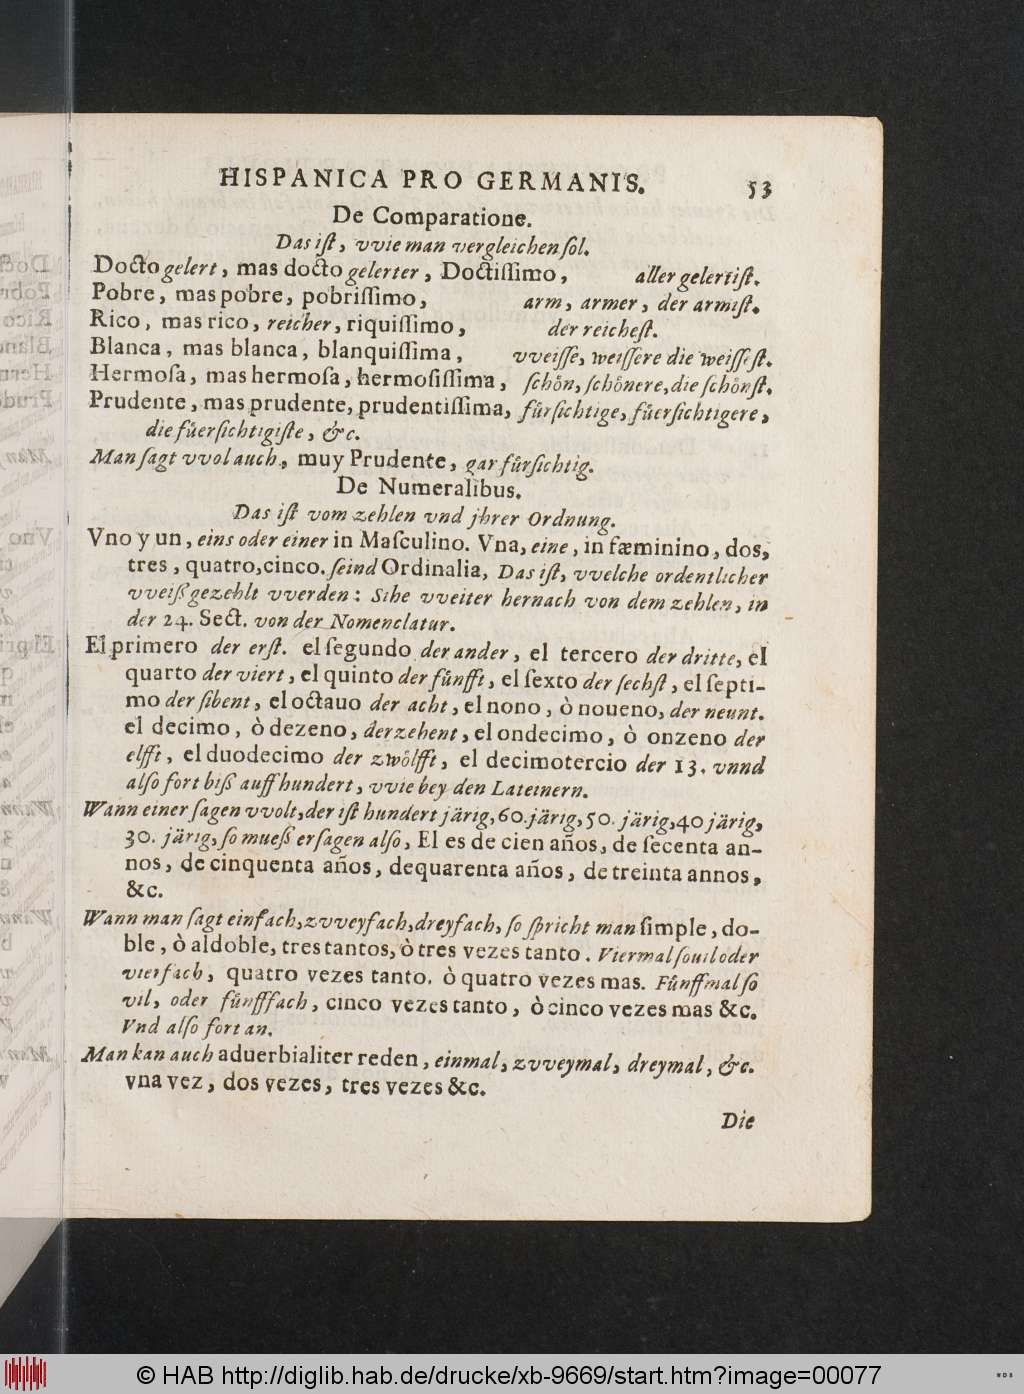 HISPANICA PRO GERMANIS. 53
De Comparatione.
Das iſt, vvie man vergleichen ſol.
Docto gelert, mas docto gelerter, Doctiſſimo, aller gelertiſt.
Pobre, mas pobre, pobriſſimo, arm, armer, der armiſt.
Rico, mas rico, reicher, riquiſſimo, der reicheſt.
Blanca, mas blanca, blanquiſſima, vveiſſe, weiſſere die weiſſeſt.
Hermoſa, mas hermoſa, hermoſiſſima, ſchoͤn, ſchoͤnere, die ſchoͤnſt.
Prudente, mas prudente, prudentiſſima, fuͤrſichtige, fuͤerſichtigere,
die fuͤerſichtigiſte, &c.
Man ſagt vvol auch, muy Prudente, gar fuͤrſichtig.
De Numeralibus.
Das iſt vom zehlen vnd jhrer Ordnung.
Vno y un, eins oder einer in Maſculino. Vna, eine, in fæminino, dos,
tres, quatro, cinco. ſeind Ordinalia, Das iſt, vvelche ordentlicher
vveiß gezehlt vverden: Sihe vveiter hernach von dem zehlen, in
der 24. Sect. von der Nomenclatur.
El primero der erſt. el ſegundo der ander, el tercero der dritte, el
quarto der viert, el quinto der fuͤnfft, el ſexto der ſechſt, el ſepti-
mo der ſibent, el octauo der acht, el nono, ò noueno, der neunt.
el decimo, ò dezeno, der zehent, el ondecimo, ò onzeno der
elfft, el duodecimo der zwoͤlfft, el decimotercio der 13. vnnd
alſo fort biß auff hundert, vvie bey den Lateinern.
Wann einer ſagen vvolt, der iſt hundert järig, 60. järig, 50. järig, 40 järig,
30. järig, ſo mueß er ſagen alſo, El es de cien años, de ſecenta an-
nos, de cinquenta años, dequarenta años, de treinta annos,
&c.
Wann man ſagt einfach, zvveyfach, dreyfach, ſo ſpricht man ſimple, do-
ble, ò aldoble, tres tantos, ò tres vezes tanto. Viermal ſouil oder
vierfach, quatro vezes tanto. ò quatro vezes mas. Fuͤnffmal ſo
vil, oder fuͤnfffach, cinco vezes tanto, ò cinco vezes mas &c.
Vnd alſo fort an.
Man kan auch aduerbialiter reden, einmal, zvveymal, dreymal, &c.
vna vez, dos vezes, tres vezes &c.
Die
© HAB http://diglib.hab.de/drucke/xb-9669/start.htm?image=00077